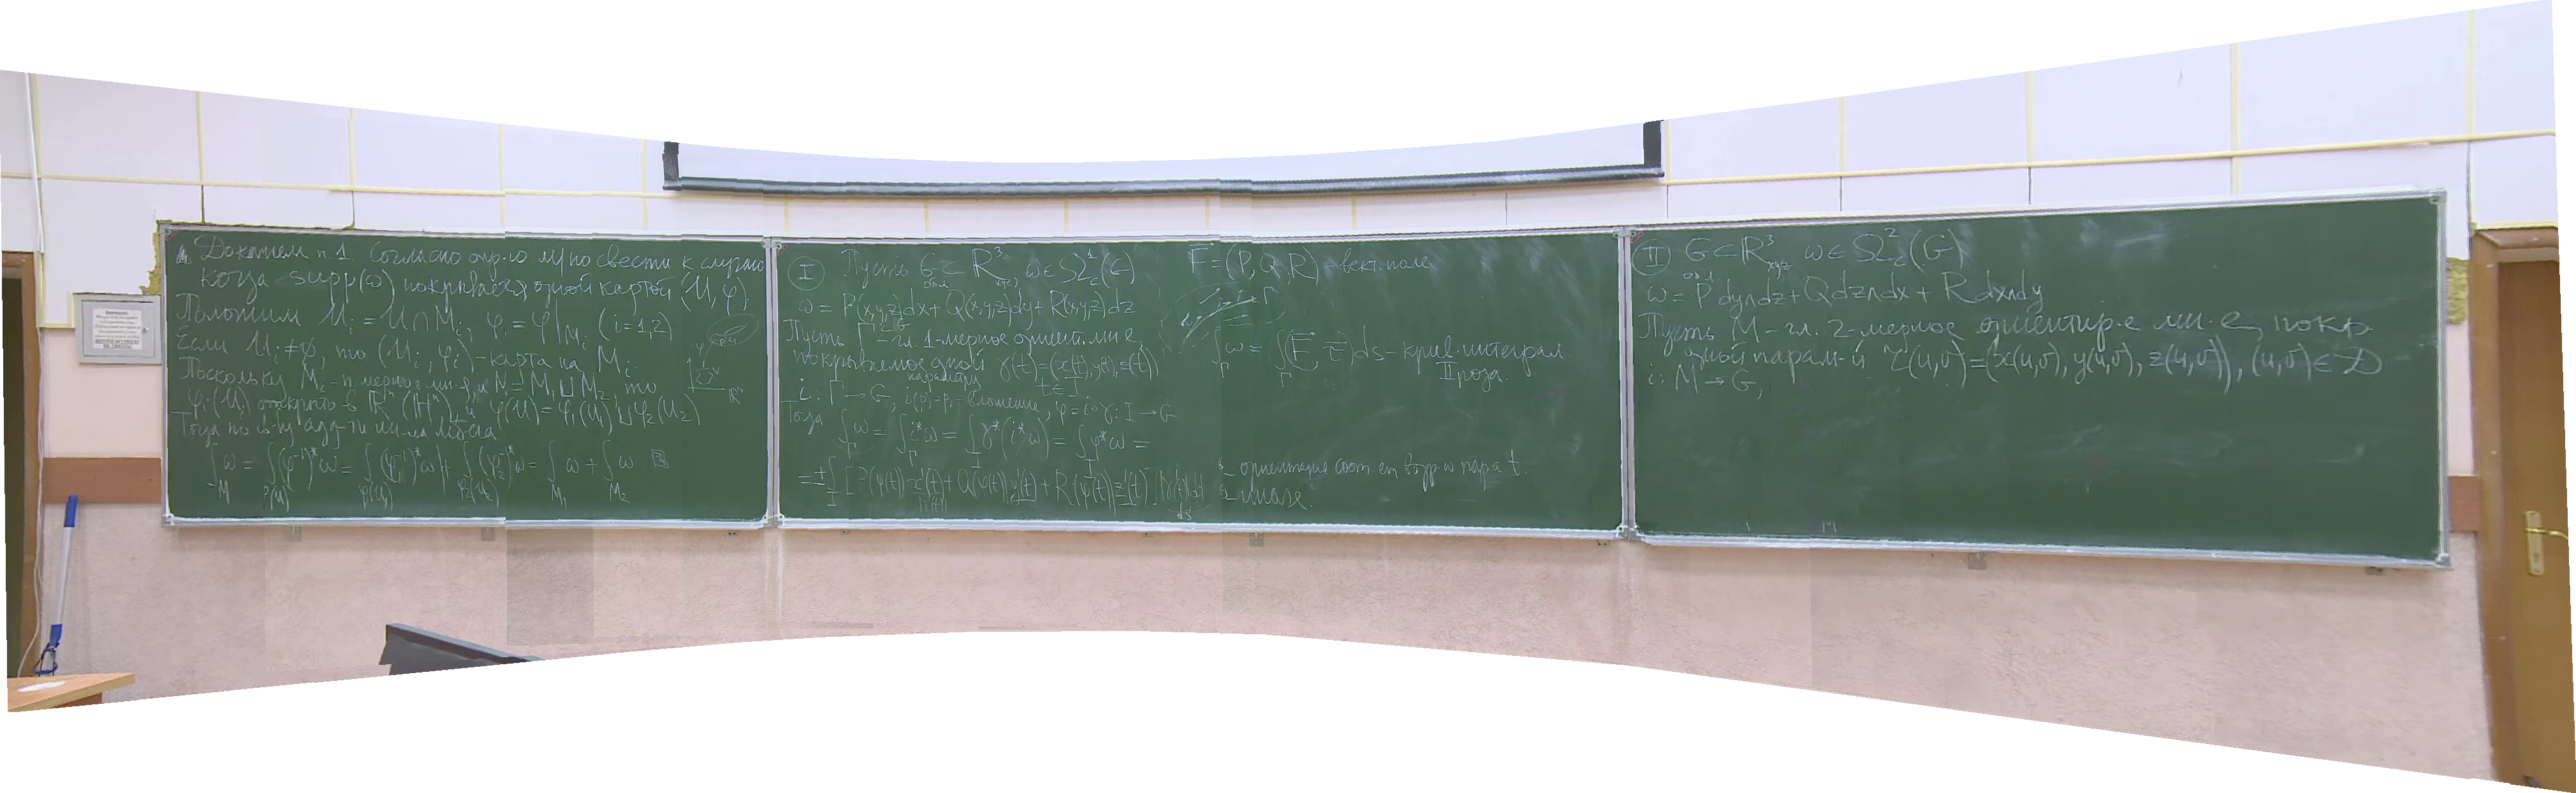 Докажем п.1. Согласно опр-ю м/но свести к случаю
когда supp(ω) покрывается одной картой (U, φ).
Положим U_i = U ∩ M_i, φ_i = φ|_{M_i} (i=1,2)
Если U_i ≠ ∅, то (U_i, φ_i) - карта на M_i.
Поскольку M_i - n мерное мн-е, и M = M_1 ⊔ M_2, то
φ_i(U_i) открыто в ℝⁿ (ℍⁿ) и φ(U) = φ_1(U_1) ⊔ φ_2(U_2)
Тогда по св-ву адд-ти
∫_M ω = ∫_{φ(U)} (φ^{-1})^* ω = ∫_{φ(U_1)} (φ_1^{-1})^* ω + ∫_{φ_2(U_2)} (φ_2^{-1})^* ω = ∫_{M_1} ω + ∫_{M_2} ω.
I Пусть G ⊂ ℝ³, ω ∈ Ω_c^1(G)
обл.
F = (P, Q, R) - вект. поле
ω = P(x,y,z)dx + Q(x,y,z)dy + R(x,y,z)dz
Γ
Пусть Γ - гл. 1-мерное ориент. мн-е,
покрываемое одной γ(t) = (x(t), y(t), z(t))
t ∈ I
i: Γ → G, i(p) = p - вложение, ψ = i∘γ: I → G
Тогда
∫_Γ ω = ∫_Γ i^*ω = ∫_I γ^*(i^*ω) = ∫_I ψ^*ω =
= ± ∫_I [P(ψ(t)) x'(t) + Q(ψ(t)) y'(t) + R(ψ(t)) z'(t)]
ds
∫_Γ ω = ∫_Γ (F, τ) ds - крив. интеграл
II рода.
ориентация соот-ет возр-ю пар-а t.
иначе.
II G ⊂ ℝ³_{xyz} ω ∈ Ω_c^2(G)
обл.
ω = P dy∧dz + Q dz∧dx + R dx∧dy
Пусть M - гл. 2-мерное ориентир-е мн-е, покр.
одной парам-й r(u,v) = (x(u,v), y(u,v), z(u,v)), (u,v) ∈ D
i: M → G,